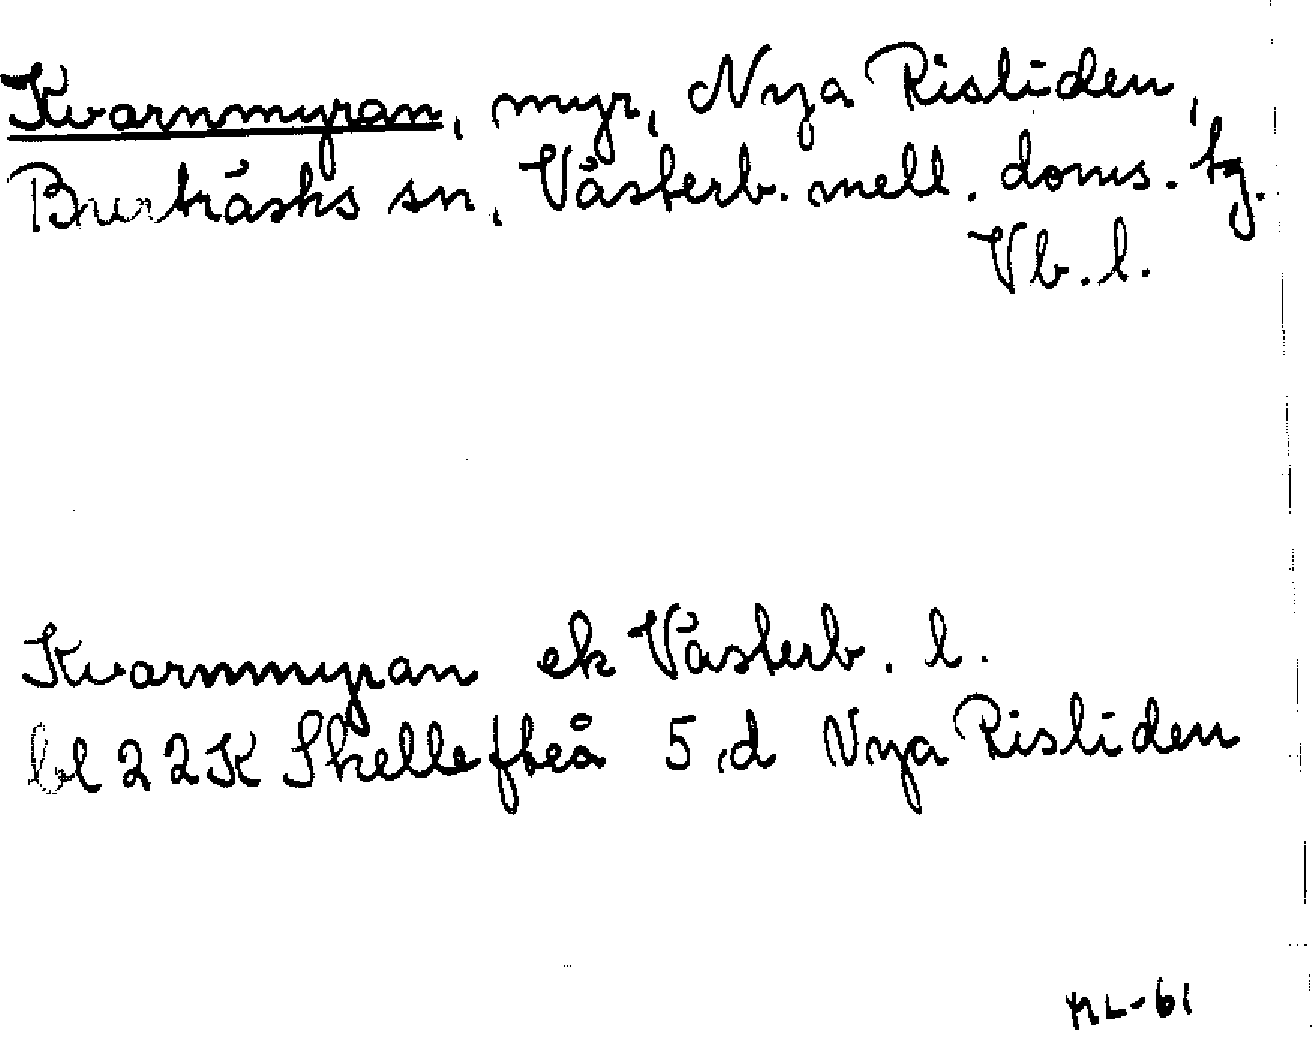 Kvarnmyran, myr, Nya Risliden,
Burträsks sn, Västerb. mell. doms. tg.
Vb. l.
Kvarnmyran ek Västerb. l.
bl 22K Skellefteå 5 d Nya Risliden
ML-61